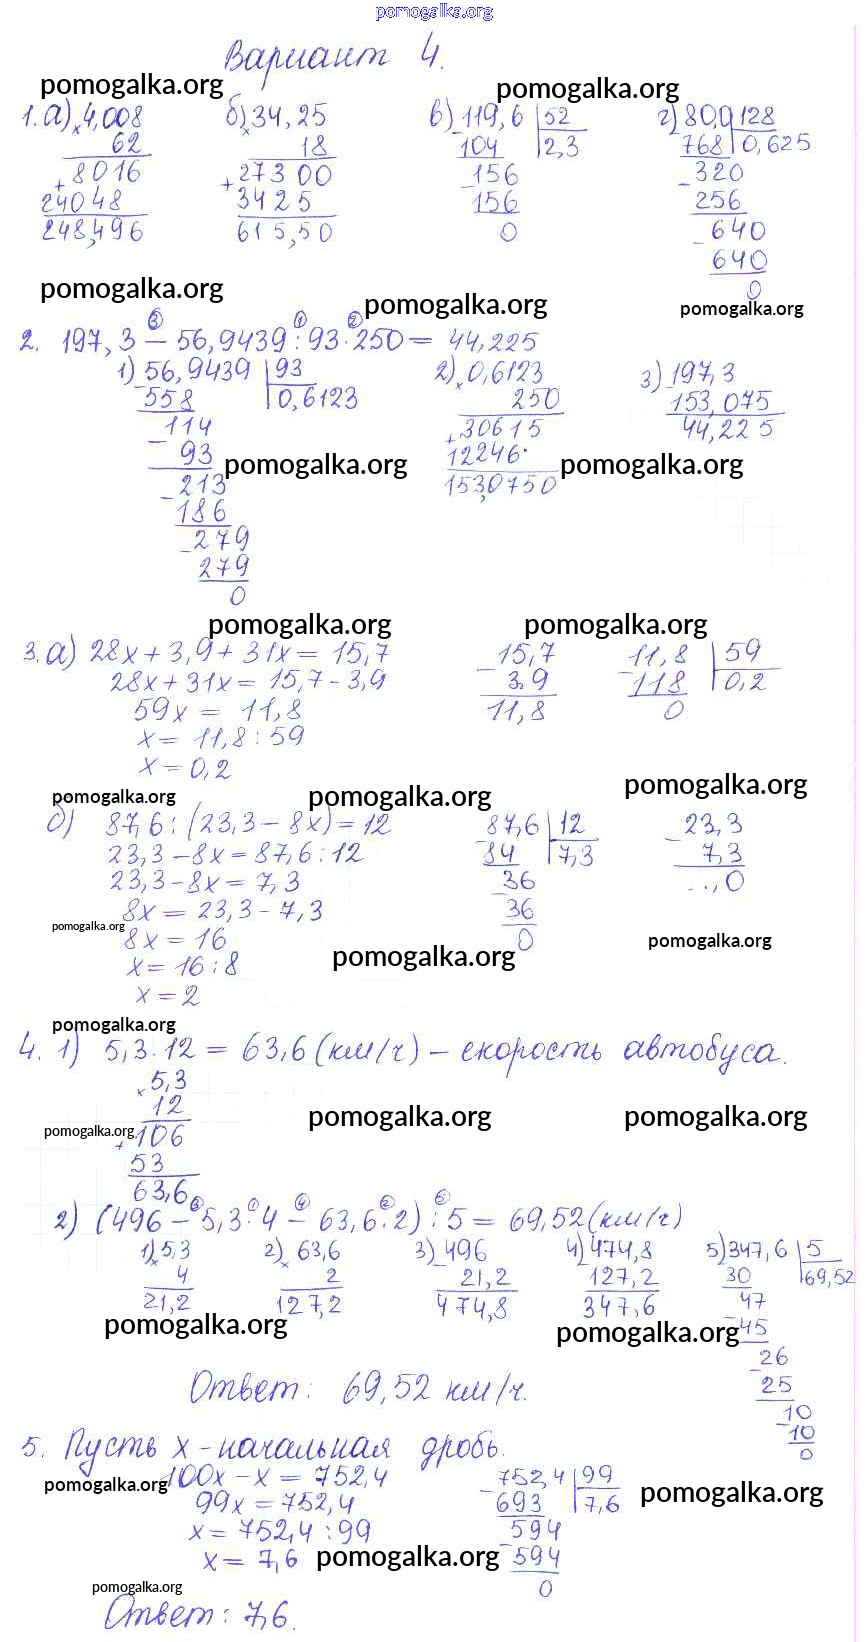 pomogalka.org
Вариант 4.
pomogalka.org pomogalka.org
1. а) × 4,008 б) × 34,25 в) 119,6 | 52 г) 80,0 | 128
62 18 104 | 2,3 768 | 0,625
+ 8016 + 27300 - 156 - 320
24048 3425 156 256
248,496 615,50 0 - 640
640
0
pomogalka.org pomogalka.org pomogalka.org
③ ① ②
2. 197,3 - 56,9439 : 93 · 250 = 44,225
1) 56,9439 | 93 2) × 0,6123 3) - 197,3
- 558 | 0,6123 250 153,075
114 + 30615 44,225
- 93 12246·
213 153,0750
- 186
- 279
279
0
pomogalka.org pomogalka.org
pomogalka.org pomogalka.org
3. а) 28x + 3,9 + 31x = 15,7 - 15,7 11,8 | 59
28x + 31x = 15,7 - 3,9 3,9 - 118 | 0,2
59x = 11,8 11,8 0
x = 11,8 : 59
x = 0,2
pomogalka.org pomogalka.org pomogalka.org
б) 87,6 : (23,3 - 8x) = 12 87,6 | 12 - 23,3
23,3 - 8x = 87,6 : 12 84 | 7,3 7,3
23,3 - 8x = 7,3 - 36 ..,0
8x = 23,3 - 7,3 36
8x = 16 0
x = 16 : 8
x = 2
pomogalka.org pomogalka.org pomogalka.org
pomogalka.org
4. 1) 5,3 · 12 = 63,6 (км/ч) – скорость автобуса.
× 5,3
12
+ 106
53
63,6
pomogalka.org pomogalka.org pomogalka.org
③ ① ④ ② ⑤
2) (496 - 5,3 · 4 - 63,6 · 2) : 5 = 69,52 (км/ч)
1) × 5,3 2) × 63,6 3) - 496 4) - 474,8 5) 347,6 | 5
4 2 21,2 127,2 30 | 69,52
21,2 127,2 474,8 347,6 47
- 45
26
- 25
10
- 10
0
pomogalka.org pomogalka.org
Ответ: 69,52 км/ч.
5. Пусть x - начальная дробь.
100x - x = 752,4 - 752,4 | 99
99x = 752,4 693 | 7,6
x = 752,4 : 99 594
x = 7,6 - 594
0
pomogalka.org pomogalka.org
pomogalka.org
pomogalka.org
Ответ: 7,6.